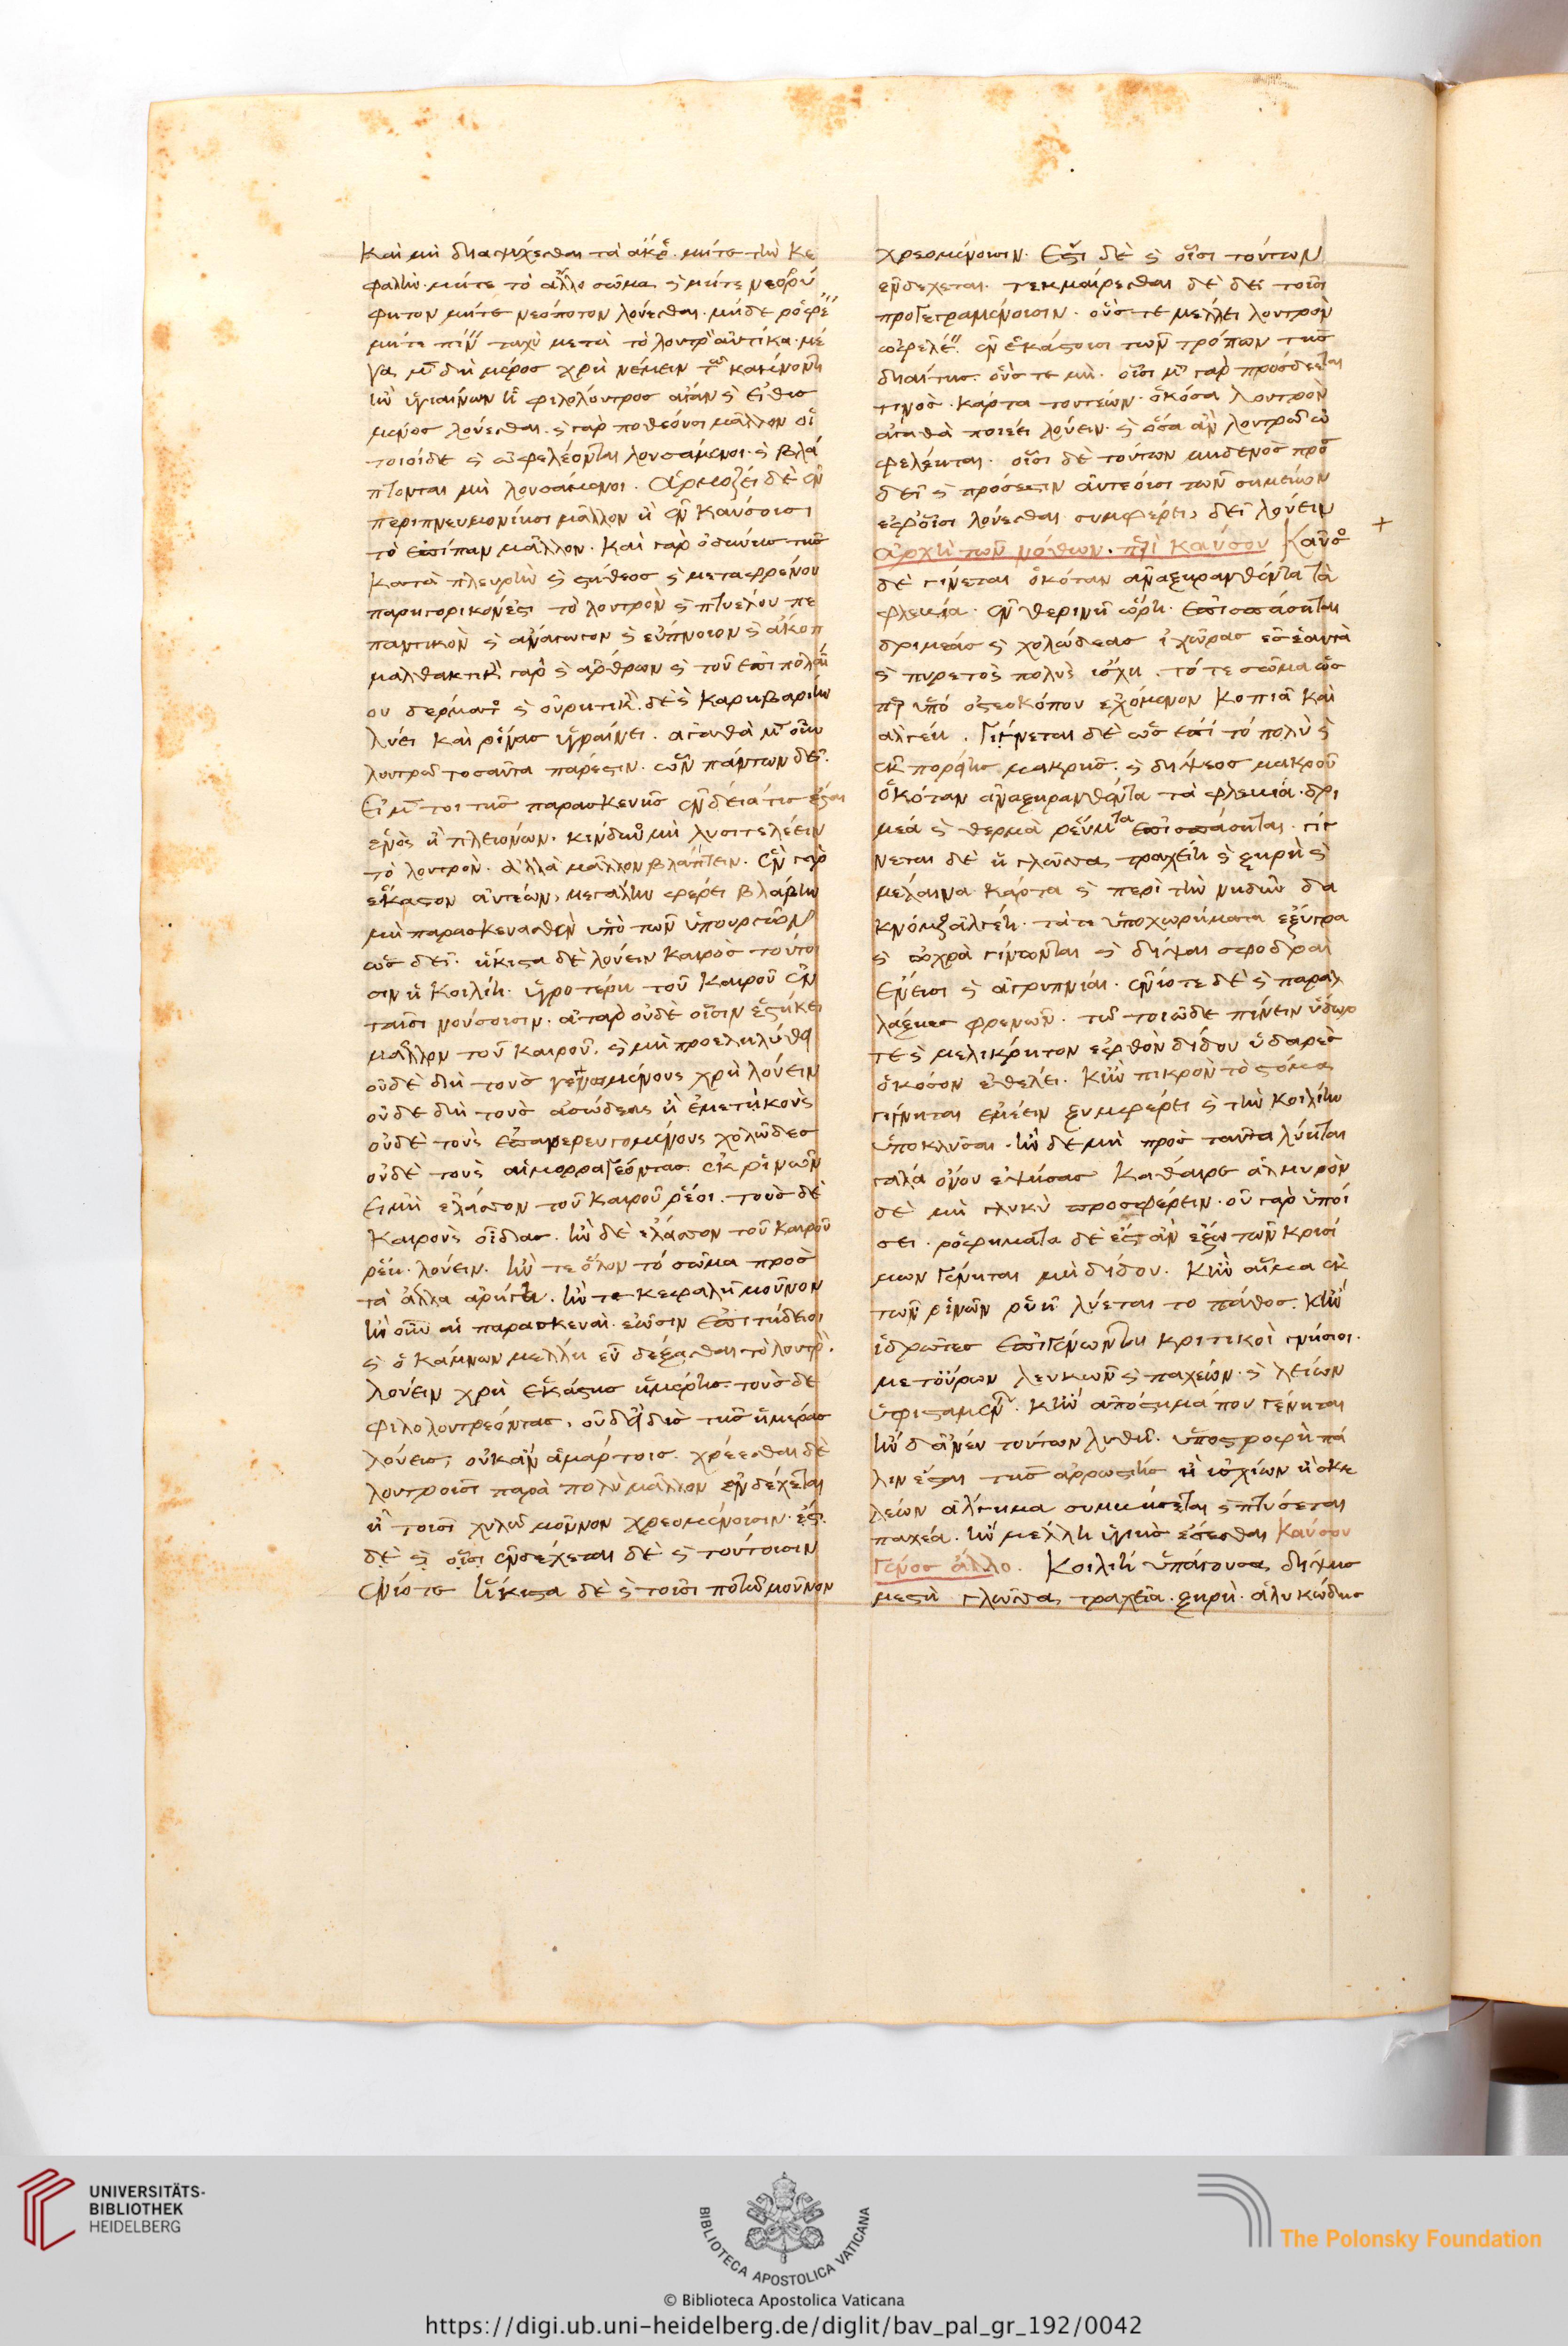 καὶ μὴ διαψύχεσθαι τὰ ἄκρ. μήτε τὴν κε
φαλήν. μήτε τὸ ἄλλο σῶμα ϛ μήτε νεορρύ
φητον μήτε νεόποτον λούεσθαι. μήδε
μήτε ταχὺ μετὰ τὸ λουτρ αὐτίκα. μέ
γα μ δὴ μέρος χρὴ νέμειν τ κάμνοντι
ἢν ὑγιαίνων ἦ φιλόλουτρος ἄγαν ϛ εἰθισ
μένος λούεσθαι. ϛ γὰρ ποθέουσι μᾶλλον οἱ
τοιοίδε ϛ ὠφελέονται λουσάμενοι. ϛ βλά
πτονται μὴ λουσάμενοι. ἁρμόζει δὲ ἐν
περιπνευμονίῃσι μᾶλλον ἢ ἐν καύσοισι
τὸ ἐπίπαν μᾶλλον. καὶ γὰρ ὀδύνης τῆς
κατὰ πλευρὴν ϛ στήθεος ϛ μεταφρένου
παρηγορικόν ἐστι τὸ λουτρὸν ϛ πτυέλου πε
παντικὸν ϛ ἀνάγωγον ϛ εὔπνοιον ϛ ἄκοπ
μαλθακτικ γὰρ ϛ ἄρθρων ϛ τοῦ ἐπιπολαί
ου δέρματ ϛ οὐρητικ. δὲ ϛ καρηβαρίην
λύει καὶ ῥῖνας ὑγραίνει. ἀγαθὰ μ οὖν
λουτρῶ τοσαῦτα πάρεστιν. ὧν πάντων δεῖ.
εἰ μ τοι τῆς παρασκευῆς ἔνδειά τις ἔσται
ἑνὸς ἢ πλειόνων. κίνδυν μὴ λυσιτελέειν
τὸ λουτρὸν. ἀλλὰ μᾶλλον βλάπτειν. ἓν γὰρ
ἕκαστον αὐτέων, μεγάλην φέρει βλάβην
μὴ παρασκευασθὲν ὑπὸ τῶν ὑπουργῶν
ὡς δεῖ. ἥκιστα δὲ λούειν καιρὸς τούτοι
σιν ἢ κοιλίη. ὑγροτέρη τοῦ καιροῦ ἐν
ταῖσι νούσοισιν. ἀτὰρ οὐδὲ οἷσιν ἑστήκει
μᾶλλον τοῦ καιροῦ. ϛ μὴ προεληλύθη
οὐδὲ δὴ τοὺς χρὴ λούειν
οὐδὲ δὴ τοὺς ἀσώδεας ἢ ἐμετικοὺς
οὐδὲ τοὺς ἐπαπερευγομένους χολῶδες
οὐδὲ τοὺς αἱμορραγέοντας ἐκ ῥινῶν
εἰ μὴ ἔλασσον τοῦ καιροῦ ῥέοι. τοὺς δὲ
καιροὺς οἶδας. ἢν δὲ ἔλασσον τοῦ καιροῦ
ῥέῃ. λούειν. ἤν τε ὅλον τὸ σῶμα πρὸς
τὰ ἄλλα ἀρήγῃ. ἤν τε κεφαλὴ μοῦνον
ἢν οὖν αἱ παρασκευαὶ. ἔωσιν ἐπιτήδειοι
ϛ ὁ κάμνων μέλλῃ εὖ δέξασθαι τὸ λουτρ.
λούειν χρὴ ἑκάστης ἡμέρης. τοὺς δὲ
φιλολουτρέοντας, οὐδ εἰ δὶς τῆς ἡμέρας
λούεις, οὐκ ἂν ἁμάρτοις. χρέεσθαι δὲ
λουτροῖσι παρὰ πολὺ μᾶλλον ἐνδέχεται
ἢ τοῖσι χυλῶ μοῦνον χρεομένοισιν. ἔστι.
δὲ ϛ οἷσι ἐνδέχεται δὲ ϛ τούτοισιν
ἐνίοτε ἥκιστα δὲ ϛ τοῖσι ποτῶ μοῦνον
χρεομένοισιν. ἔστι δὲ ϛ οἷσι τούτων
ἐνδέχεται. τεκμαίρεσθαι δὲ δεῖ τοῖσι
προγεγραμένοισιν. οὕς τε μέλλει λουτρὸν
ὠφελέ. ἐν ἑκάστοισι τῶν τρόπων τῆς
διαίτης. οὕς τε μὴ. οἷσι μ γὰρ προσδεῖται
τινὸς. κάρτα τουτέων. ὁκόσα λουτρὸν
ἀγαθὰ ποιέει λούειν. ϛ ὅσα ἂν λουτρῶ ὠ
φελέηται. οἷσι δὲ τούτων μηδενὸς προσ
δεῖ ϛ πρόσεστιν αὐτέοισι τῶν σημείων
ἐφ' οἷσι λούεσθαι συμφέρει, δεῖ λούειν
ἀρχὴ τῶν νόθων. περὶ καύσου Καῦσο +
δὲ γίνεται ὁκόταν ἀναξηρανθέντα τὰ
φλεβία. ἐν θερινῆ ὥρη. ἐπισπάσηται
δριμέας ϛ χολώδεας ἰχῶρας ἐς ἑαυτὰ
ϛ πυρετὸς πολὺς ἴσχει. τό τε σῶμα ὡς
περ ὑπὸ ὀστεοκόπου ἐχόμενον κοπιᾶ καὶ
ἀλγέει. γίγνεται δὲ ὡς ἐπὶ τὸ πολὺ ϛ
ἐκ πορείης μακρῆς. ϛ δίψεος μακροῦ
ὁκόταν ἀναξηρανθέντα τὰ φλεβία. δρι
μέα ϛ θερμὰ ῥεύματα ἐπισπάσηται. γίγ
νεται δὲ ἡ γλῶσσα τραχείη ϛ ξηρὴ ϛ
μέλαινα κάρτα ϛ περὶ τὴν νηδὺν δα
κνόμενος ἀλγέει. τά τε ὑποχωρήματα ἐξυγρα
ϛ ὠχρὰ γίνονται ϛ δίψαι σφοδραὶ
ἔνεισι ϛ ἀγρυπνίαι. ἐνίοτε δὲ ϛ παραλ
λάξιες φρενῶν. τῶ τοιῶδε πίνειν ὕδωρ
τε ϛ μελίκρητον ἑφθὸν δίδου ὑδαρὲς
ὁκόσον ἐθέλει. κἢν πικρὸν τὸ στόμα
γίγνηται ἐμέειν ξυμφέρει ϛ τὴν κοιλίην
ὑποκλύσαι. ἢν δὲ μὴ πρὸς ταῦτα λύηται
γάλα ὄνου ἑψήσας κάθαιρε ἁλμυρὸν
δὲ μὴ γλυκὺ προσφέρειν. οὐ γὰρ ὑποί
σει. ῥοφήματα δὲ ἔστ' ἂν ἔξω τῶν κρισί
μων γένηται μὴ δίδου. κἢν αἷμα ἐκ
τῶν ῥινῶν ῥυῆ λύεται τὸ πάθος. κἢν
ἱδρῶτες ἐπιγένωνται κριτικοὶ γνήσιοι.
μετ' οὔρων λευκῶν ϛ παχέων. ϛ λείων
ὑφισταμέν. κἢν ἀπόστημά που γένηται
ἢν δ' ἄνευ τούτων λυθῆ. ὑποστροφὴ πά
λιν ἔσται τῆς ἀρρωστίης ἢ ἰσχίων ἢ σκε
λέων ἄλγημα συμβήσεται ϛ πτύσεται
παχέα. ἢν μέλλῃ ὑγιὴς ἔσεσθαι Καύσου
γένος ἄλλο. Κοιλίη ὑπάγουσα, δίψης
μεστὴ γλῶσσα, τραχεῖα. ξηρὴ. ἁλυκώδης
UNIVERSITÄTS-
BIBLIOTHEK
HEIDELBERG
BIBLIOTECA APOSTOLICA VATICANA
The Polonsky Foundation
© Biblioteca Apostolica Vaticana
https://digi.ub.uni-heidelberg.de/diglit/bav_pal_gr_192/0042